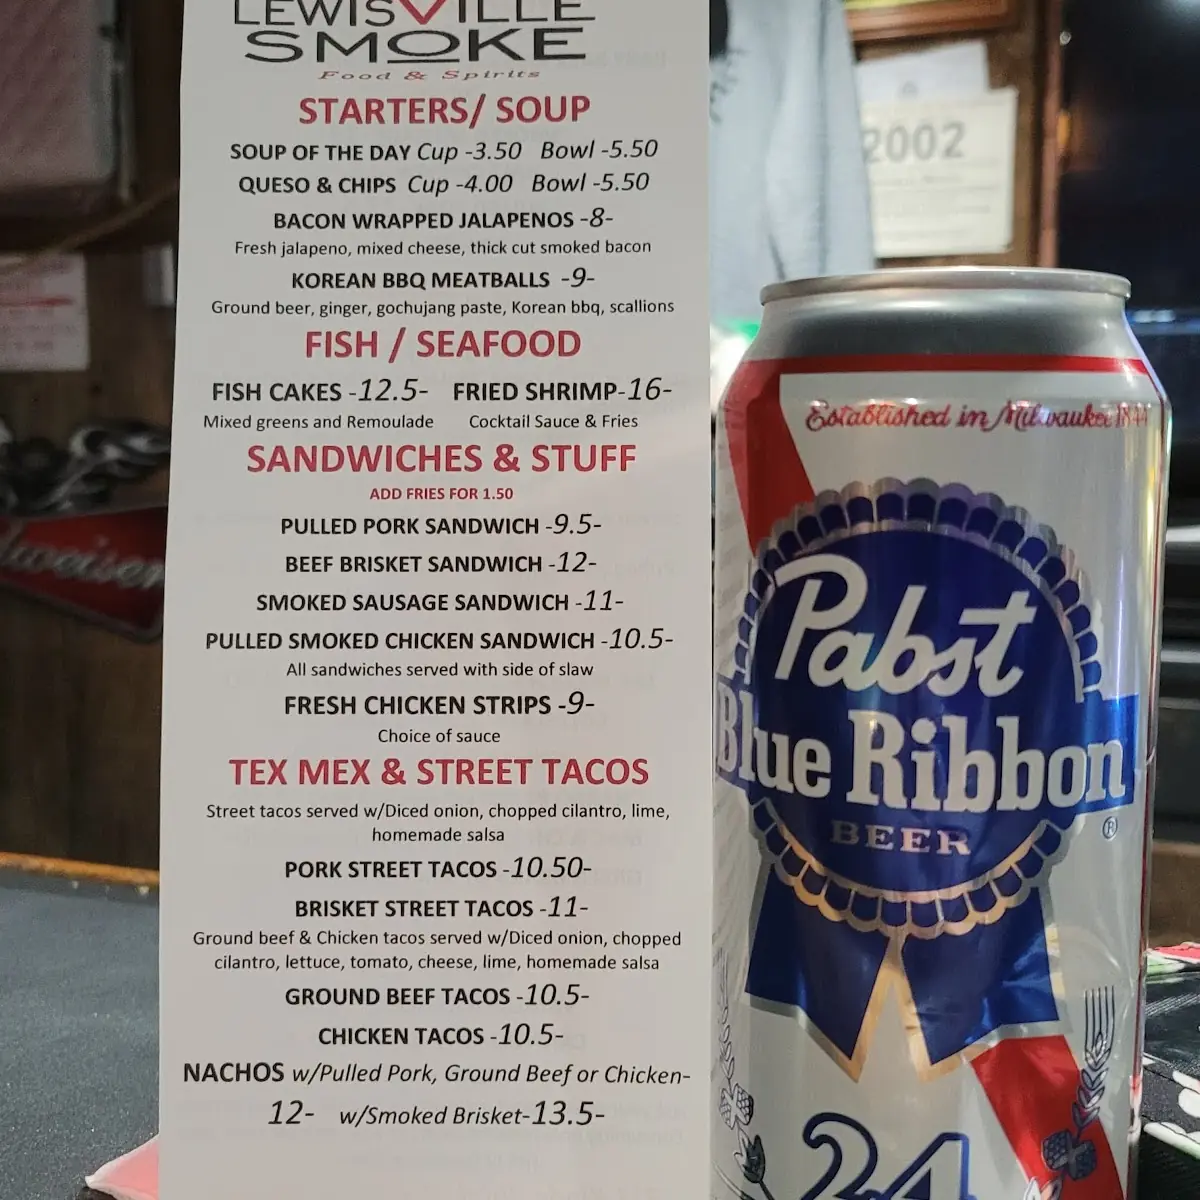 LEWISVILLE
SMOKE
Food & Spirits
STARTERS/ SOUP
SOUP OF THE DAY Cup -3.50 Bowl -5.50
QUESO & CHIPS Cup -4.00 Bowl -5.50
BACON WRAPPED JALAPENOS -8-
Fresh jalapeno, mixed cheese, thick cut smoked bacon
KOREAN BBQ MEATBALLS -9-
Ground beer, ginger, gochujang paste, Korean bbq, scallions
FISH / SEAFOOD
FISH CAKES -12.5- FRIED SHRIMP-16-
Mixed greens and Remoulade Cocktail Sauce & Fries
SANDWICHES & STUFF
ADD FRIES FOR 1.50
PULLED PORK SANDWICH -9.5-
BEEF BRISKET SANDWICH -12-
SMOKED SAUSAGE SANDWICH -11-
PULLED SMOKED CHICKEN SANDWICH -10.5-
All sandwiches served with side of slaw
FRESH CHICKEN STRIPS -9-
Choice of sauce
TEX MEX & STREET TACOS
Street tacos served w/Diced onion, chopped cilantro, lime,
homemade salsa
PORK STREET TACOS -10.50-
BRISKET STREET TACOS -11-
Ground beef & Chicken tacos served w/Diced onion, chopped
cilantro, lettuce, tomato, cheese, lime, homemade salsa
GROUND BEEF TACOS -10.5-
CHICKEN TACOS -10.5-
NACHOS w/Pulled Pork, Ground Beef or Chicken-
12- w/Smoked Brisket-13.5-
2002
Established in Milwaukee 1844
Pabst
Blue Ribbon
BEER
®
24